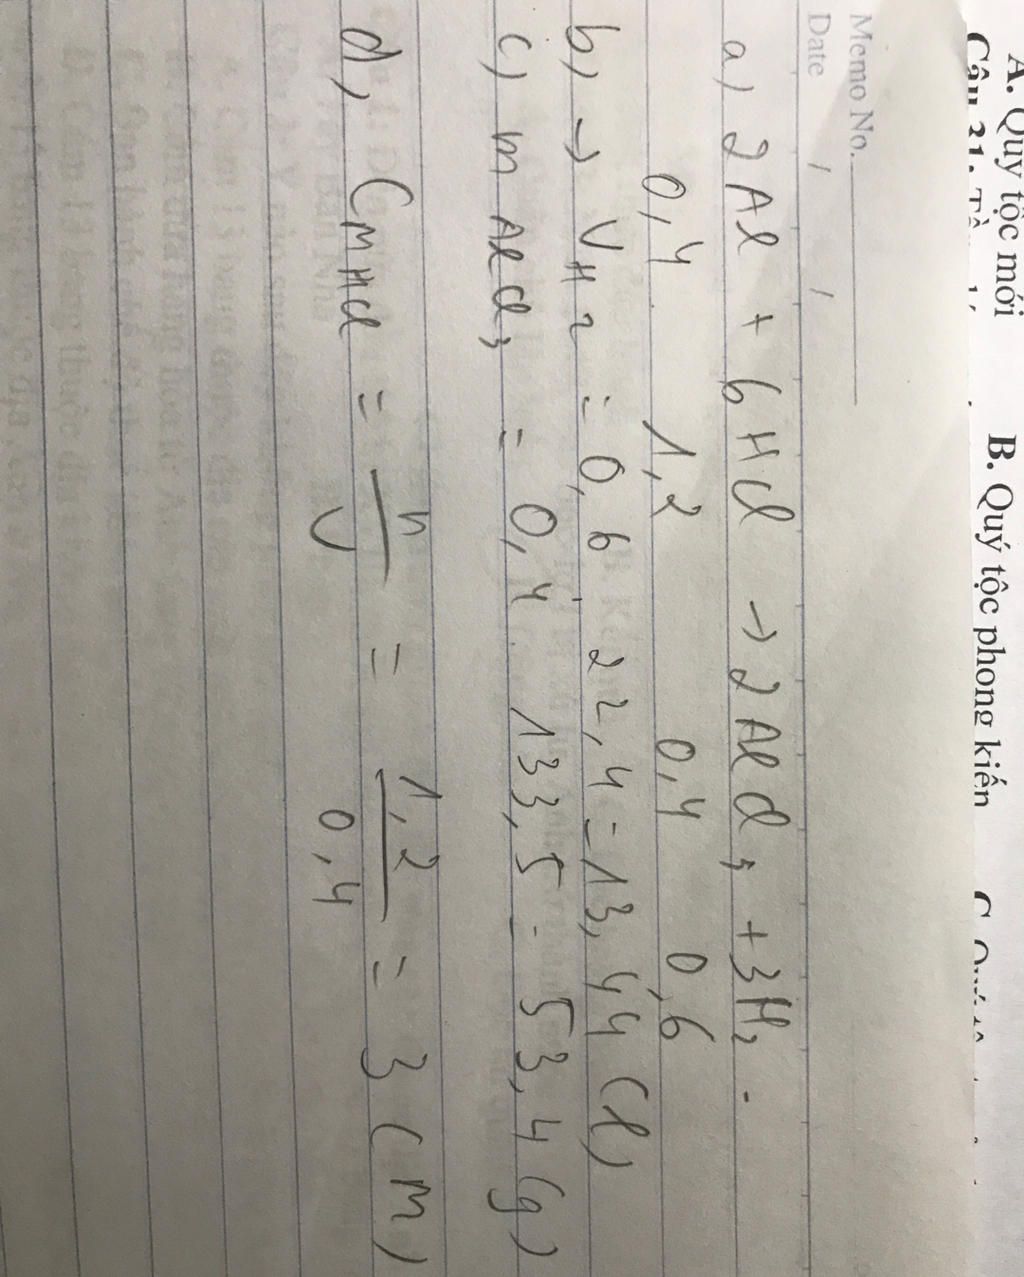 A. Quý tộc mới B. Quý tộc phong kiến
Memo No.
Date / /
a) 2Al + 6HCl → 2AlCl3 + 3H2.
0,4 1,2 0,4 0,6
b) → VH2 = 0,6 . 22,4 = 13,44 (l)
c) mAlCl3 = 0,4 . 133,5 = 53,4 (g)
d) CMHCl = n/V = 1,2/0,4 = 3 (M)